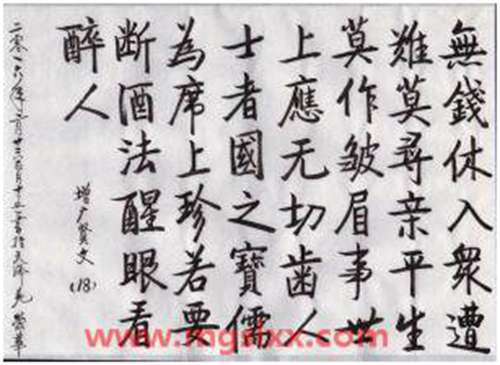 無錢休入衆遭
難莫尋亲平生
莫作皺眉事世
上應无切齒人
士者國之寶儒
為席上珍若要
断酒法醒眼看
醉人
增广賢文
(18)
二零一六年
www.mgslxx.com